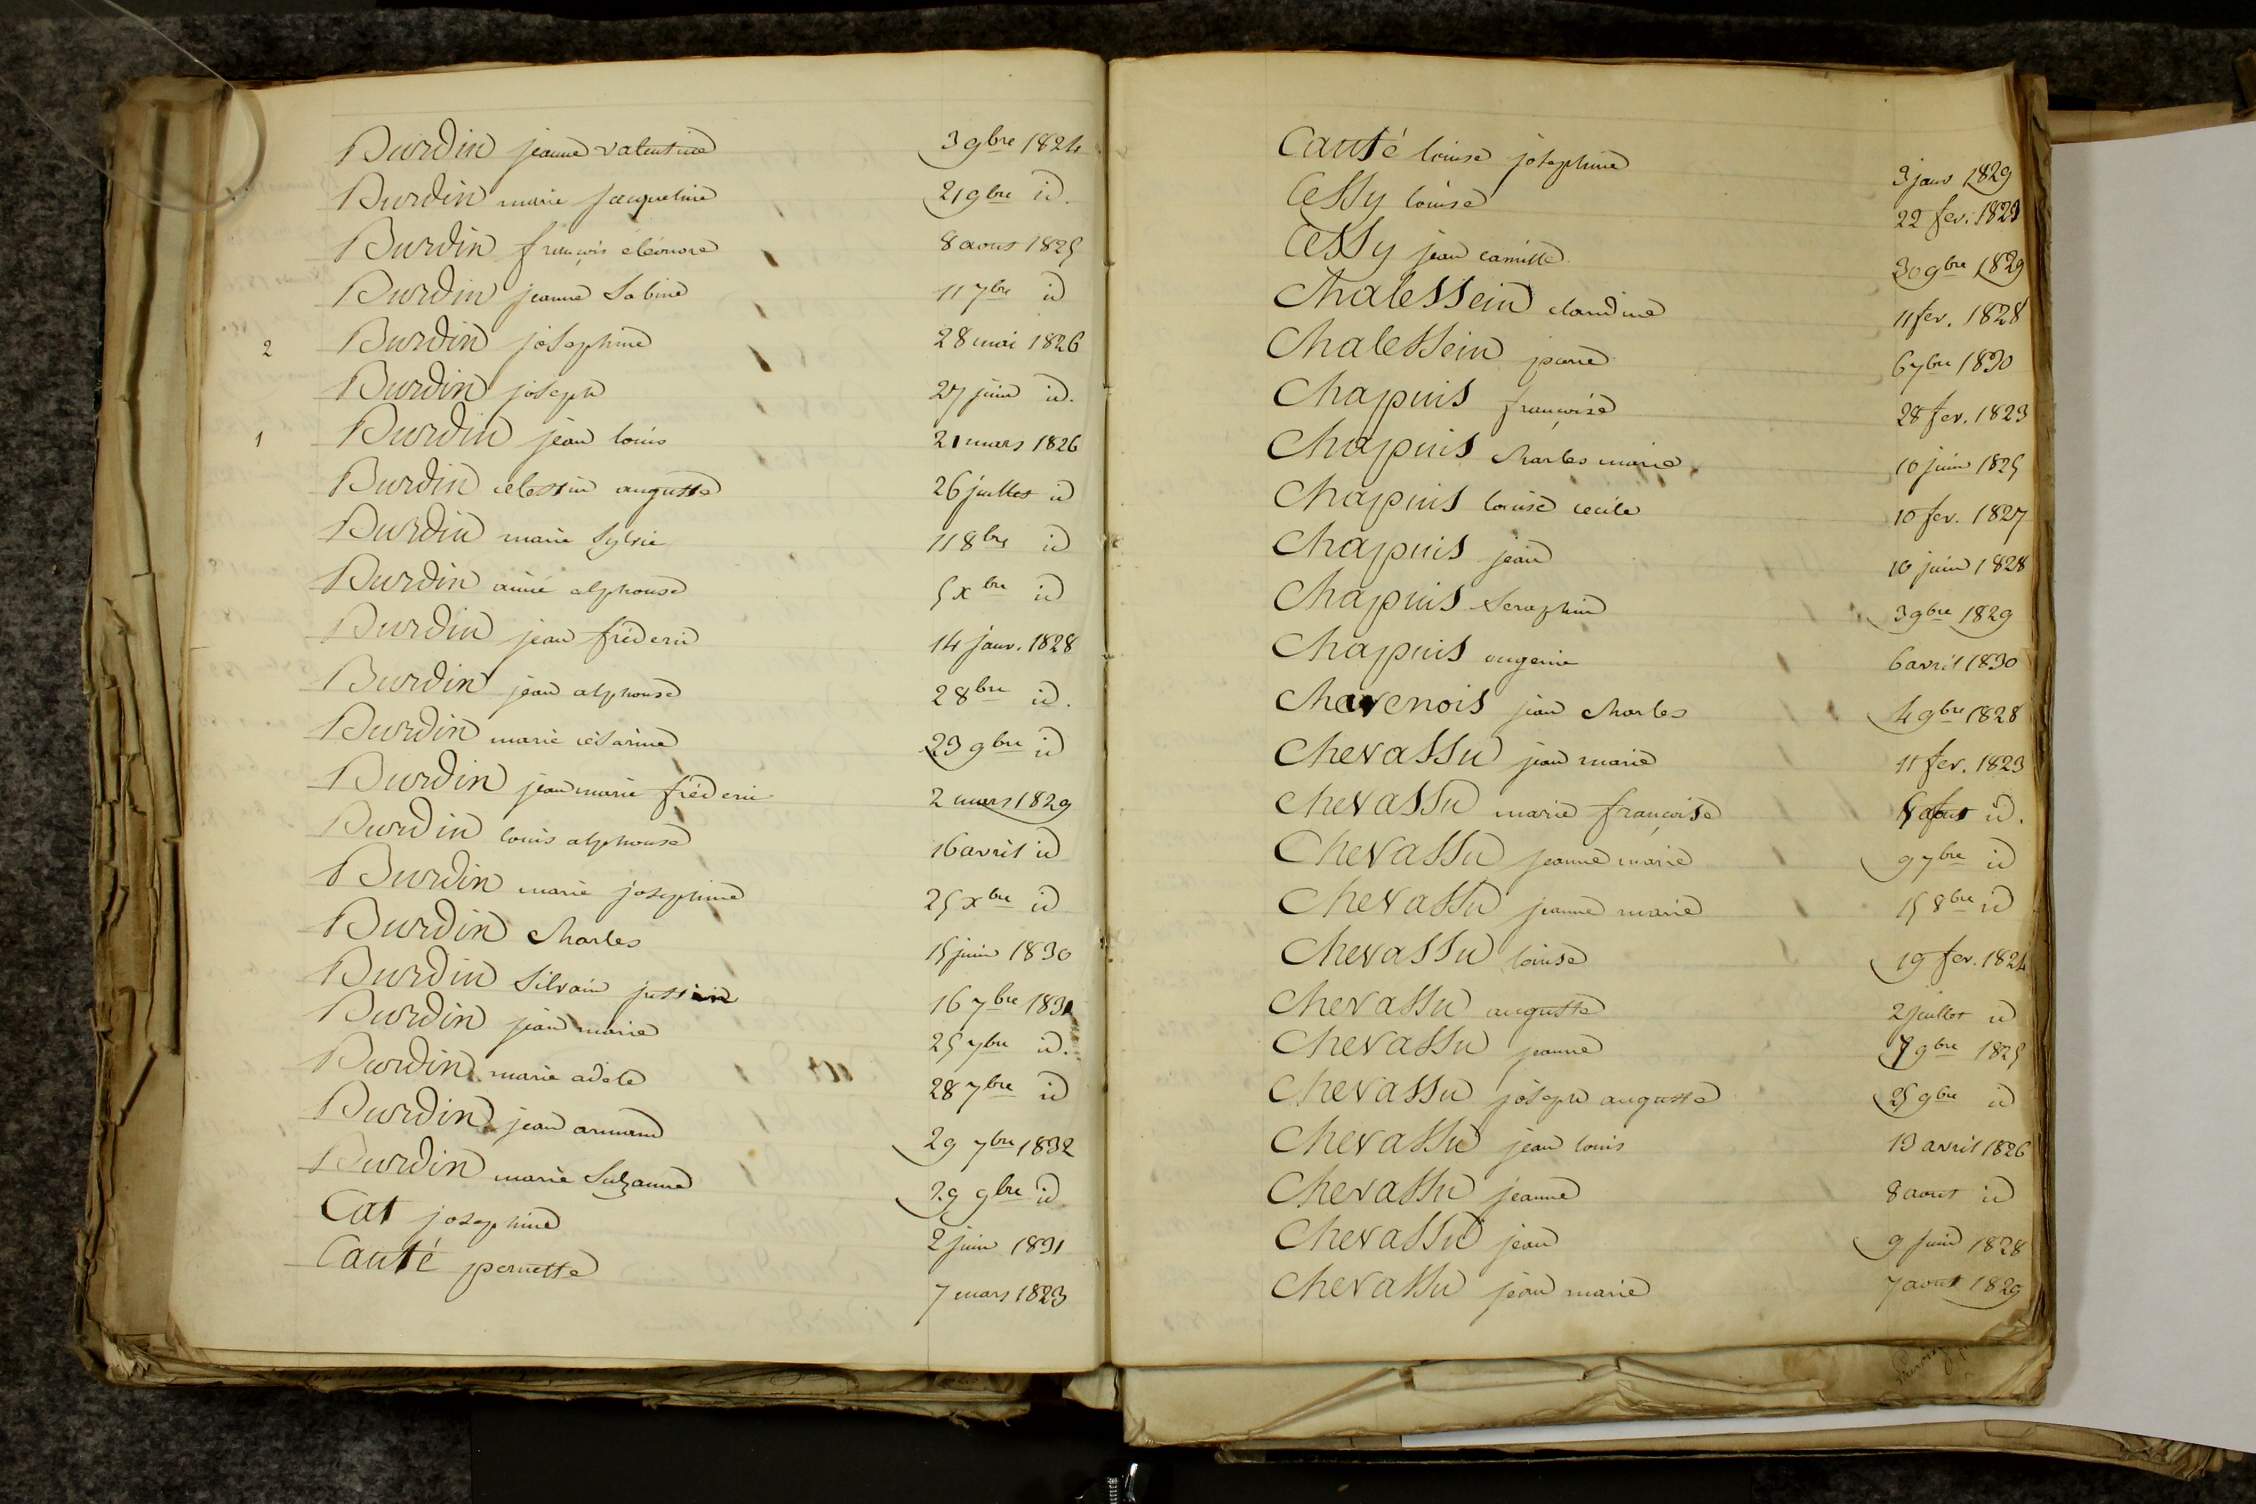 Burdin jeanne valentine 3 9bre 1824
Burdin marie jacqueline 21 9bre id.
Burdin françois éléonore 8 aout 1825
Burdin jeanne Sabine 11 7bre id
2 Burdin joséphine 28 mai 1826
Burdin joseph 27 juin id.
1 Burdin jean louis 21 mars 1826
Burdin célestin auguste 26 juillet id
Burdin marie Sylvie 11 8bre id
Burdin aimé alphonse 5 xbre id
Burdin jean fréderic 14 janv. 1828
Burdin jean alphonse 2 8bre id.
Burdin marie césarine 23 9bre id
Burdin jean marie fréderic 2 mars 1829
Burdin louis alphonse 16 avril id
Burdin marie josephine 25 xbre id
Burdin Charles 15 juin 1830
Burdin Silvain justin 16 7bre 1831
Burdin jean marie 25 7bre id.
Burdin marie adèle 28 7bre id
Burdin jean armand 29 7bre 1832
Burdin marie Suzanne 29 9bre id
Cat josephine 2 juin 1831
Canté pernette 7 mars 1823
Canté louise josephine 3 janv 1829
Cessy louise 22 fev. 1823
Cessy jean camille 30 9bre 1829
Chalessein claudine 11 fev. 1828
Chalessein pierre 6 7bre 1830
Chapuis françoise 28 fev. 1823
Chapuis Charles marie 10 juin 1825
Chapuis louise cecile 10 fev. 1827
Chapuis jean 10 juin 1828
Chapuis Seraphin 3 9bre 1829
Chapuis eugenie 6 avril 1830
Chavenois jean Charles 4 9bre 1828
Chevassu jean marie 11 fev. 1823
Chevassu marie françoise aout id.
Chevassu jeanne marie 9 7bre id
Chevassu jeanne marie 15 8bre id
Chevassu louise 19 fev. 1824
Chevassu auguste 2 juillet id
Chevassu jeanne 7 9bre 1825
Chevassu joseph auguste 25 9bre id
Chevassu jean louis 13 avril 1826
Chevassu jeanne 8 aout id
Chevassu jean 9 juin 1828
Chevassu jean marie 7 aout 1829